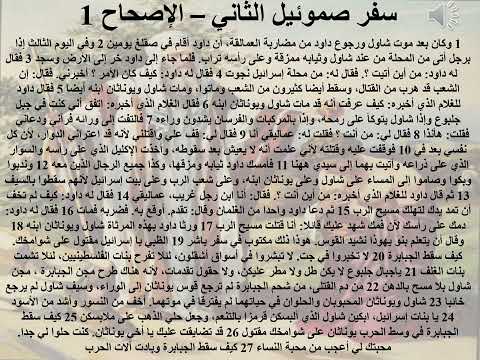 سفر صموئيل الثاني – الإصحاح 1
1 وكان بعد موت شاول ورجوع داود من مضاربة العمالقة، أن داود أقام في صقلغ يومين 2 وفي اليوم الثالث إذا
برجل أتى من المحلة من عند شاول وثيابه ممزقة وعلى رأسه تراب. فلما جاء إلى داود خر إلى الأرض وسجد 3 فقال
له داود: من أين أتيت ؟. فقال له: من محلة إسرائيل نجوت 4 فقال له داود: كيف كان الأمر ؟ أخبرني. فقال: إن
الشعب قد هرب من القتال، وسقط أيضا كثيرون من الشعب وماتوا، ومات شاول ويوناثان ابنه أيضا 5 فقال داود
للغلام الذي أخبره: كيف عرفت أنه قد مات شاول ويوناثان ابنه 6 فقال الغلام الذي أخبره: اتفق أني كنت في جبل
جلبوع وإذا شاول يتوكأ على رمحه، وإذا بالمركبات والفرسان يشدون وراءه 7 فالتفت إلى ورائه فرآني ودعاني
فقلت: هأنذا 8 فقال لي: من أنت ؟ فقلت له: عماليقي أنا 9 فقال لي: قف علي واقتلني لأنه قد اعتراني الدوار، لأن كل
نفسي بعد في 10 فوقفت عليه وقتلته لأني علمت أنه لا يعيش بعد سقوطه، وأخذت الإكليل الذي على رأسه والسوار
الذي على ذراعه وأتيت بهما إلى سيدي ههنا 11 فأمسك داود ثيابه ومزقها، وكذا جميع الرجال الذين معه 12 وندبوا
وبكوا وصاموا إلى المساء على شاول وعلى يوناثان ابنه، وعلى شعب الرب وعلى بيت إسرائيل لأنهم سقطوا بالسيف
13 ثم قال داود للغلام الذي أخبره: من أين أنت ؟. فقال: أنا ابن رجل غريب، عماليقي 14 فقال له داود: كيف لم تخف
أن تمد يدك لتهلك مسيح الرب 15 ثم دعا داود واحدا من الغلمان وقال: تقدم. أوقع به. فضربه فمات 16 فقال له داود:
دمك على رأسك لأن فمك شهد عليك قائلا: أنا قتلت مسيح الرب 17 ورثا داود بهذه المرثاة شاول ويوناثان ابنه 18
وقال أن يتعلم بنو يهوذا نشيد القوس. هوذا ذلك مكتوب في سفر ياشر 19 الظبي يا إسرائيل مقتول على شوامخك.
كيف سقط الجبابرة 20 لا تخبروا في جت. لا تبشروا في أسواق أشقلون، لئلا تفرح بنات الفلسطينيين، لئلا تشمت
بنات الغلف 21 ياجبال جلبوع لا يكن طل ولا مطر عليكن، ولا حقول تقدمات لأنه هناك طرح مجن الجبابرة ، مجن
شاول بلا مسح بالدهن 22 من دم القتلى، من شحم الجبابرة لم ترجع قوس يوناثان إلى الوراء، وسيف شاول لم يرجع
خائبا 23 شاول ويوناثان المحبوبان والحلوان في حياتهما لم يفترقا في موتهما. أخف من النسور وأشد من الأسود
24 يا بنات إسرائيل، ابكين شاول الذي ألبسكن قرمزا بالتنعم، وجعل حلي الذهب على ملابسكن 25 كيف سقط
الجبابرة في وسط الحرب يوناثان على شوامخك مقتول 26 قد تضايقت عليك يا أخي يوناثان. كنت حلوا لي جدا.
محبتك لي أعجب من محبة النساء 27 كيف سقط الجبابرة وبادت آلات الحرب